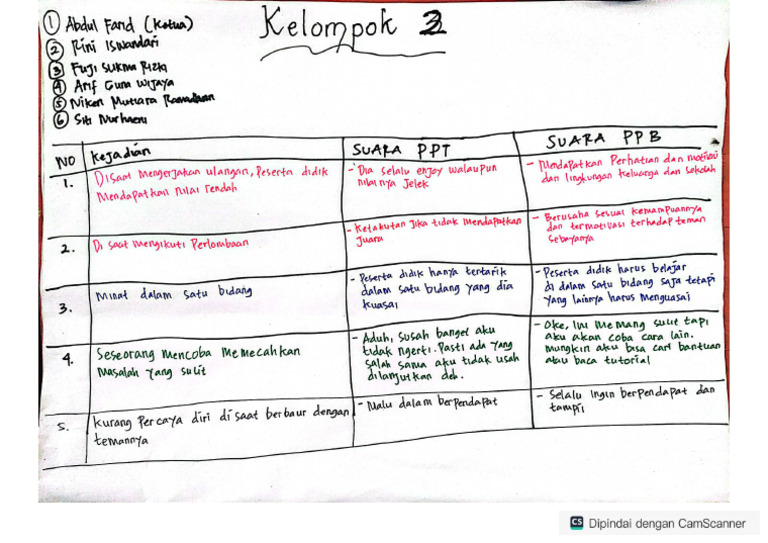 Kelompok 3
① Abdul Farid (Ketua)
② Rini Iswandari
③ Fuji Sukma Rizki
④ Arif Guna Wijaya
⑤ Niken Mutiara Ramadhan
⑥ Siti Nurhaeni
NO
Kejadian
SUARA PPT
SUARA PPB
1.
Disaat Mengerjakan ulangan, Peserta didik
Mendapatkan Nilai rendah
- Dia selalu enjoy walaupun
nilainya Jelek
- Mendapatkan Perhatian dan motivasi
dan lingkungan keluarga dan sekolah
2.
Di saat mengikuti Perlombaan
- Ketakutan Jika tidak Mendapatkan
Juara
- Berusaha sesuai kemampuannya
dan termotivasi terhadap teman
sebayanya
3.
Minat dalam satu bidang
- Peserta didik hanya tertarik
dalam satu bidang yang dia
kuasai
- Peserta didik harus belajar
di dalam satu bidang saja tetapi
yang lainnya harus Menguasai
4.
Seseorang mencoba Memecahkan
Masalah yang sulit
- Aduh, susah banget aku
tidak ngerti. Pasti ada yang
salah sama aku tidak usah
dilanjutkan deh.
- Oke, Ini Memang sulit tapi
aku akan coba cara lain.
Mungkin aku bisa cari bantuan
atau baca tutorial
5.
Kurang Percaya diri disaat berbaur dengan
temannya
- Malu dalam berpendapat
- Selalu Ingin berpendapat dan
tampil
CS Dipindai dengan CamScanner